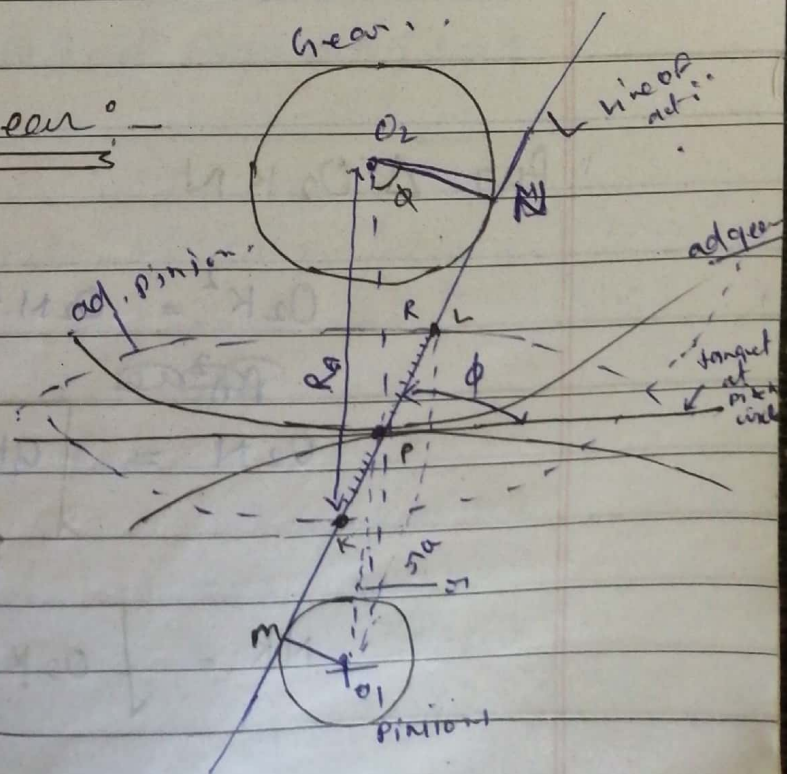 Gear
ear : -
O2
Line of
acti
Φ
N
ad. pinion
ad gear
R
L
RA
Φ
tangent
at
pitch
circle
P
K
ra
r
M
O1
Pinion